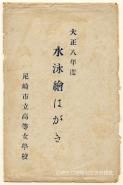 大正八年度
水泳繪はがき
尼崎市立高等女學校